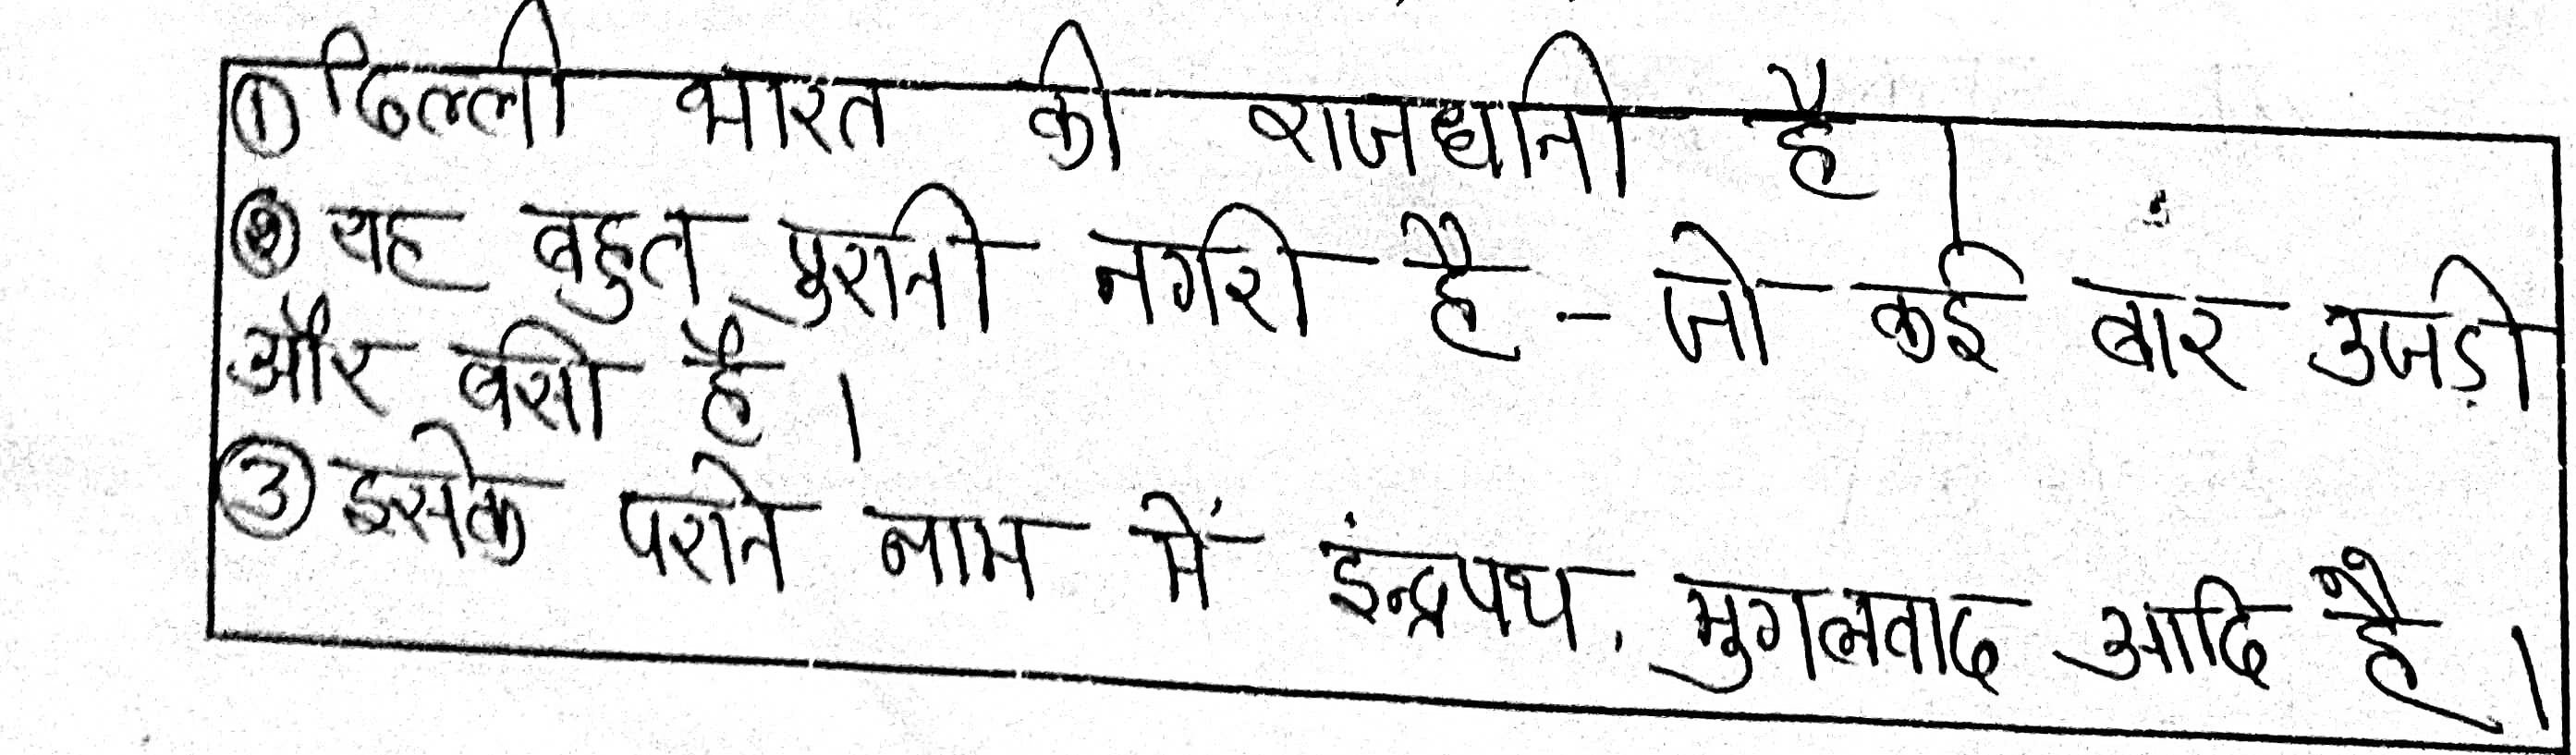 ① दिल्ली भारत की राजधानी है।
② यह बहुत पुरानी नगरी है - जो कई बार उजड़ी
और बसी है।
③ इसके पराने नाम में इंन्द्रपथ, मुगलवाद आदि है।